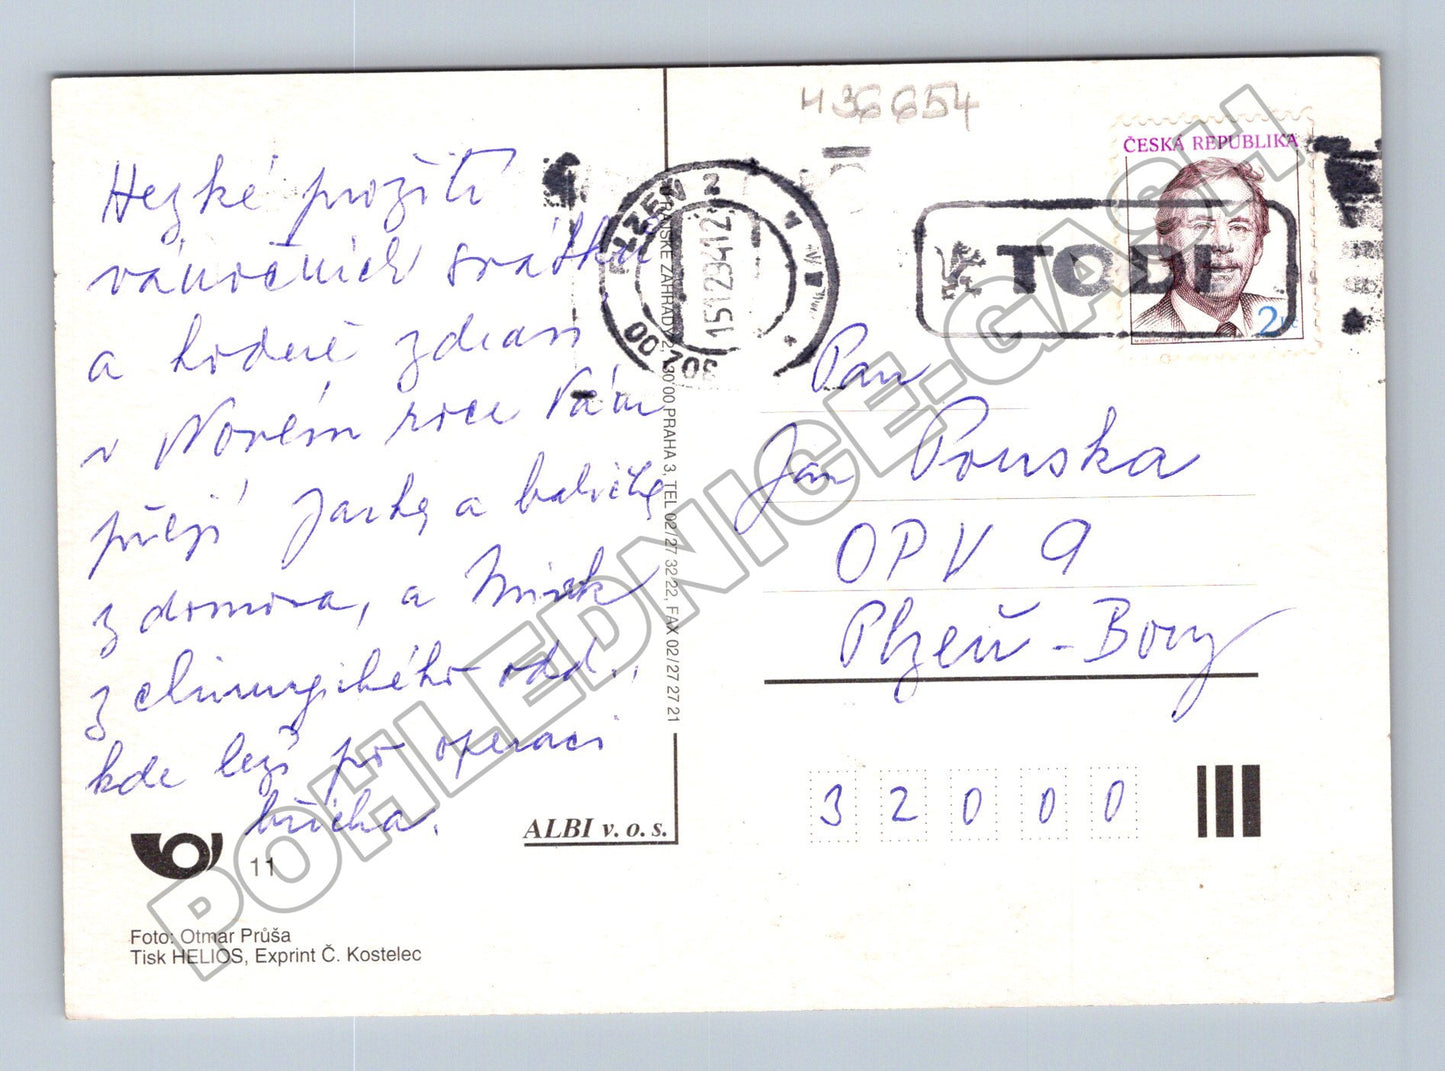 Hezké prožití
vánočních svátků
a hodně zdraví
v Novém roce Vám
přejí Jarka a babička
z domova, a Mirek
z chirurgického odd.,
kde leží po operaci
břicha.
11
Foto: Otmar Průša
Tisk HELIOS, Exprint Č. Kostelec
ALBI v. o. s.
RAJSKÉ ZAHRADY 2, 130 00 PRAHA 3, TEL 02/27 32 22, FAX 02/27 27 21
436654
PLZEŇ 2
151293-12
TODI
ČESKÁ REPUBLIKA
2 Kč
Pan
Jan Pouska
OPV 9
Plzeň - Bory
32000
POHLEDNICE-GASH